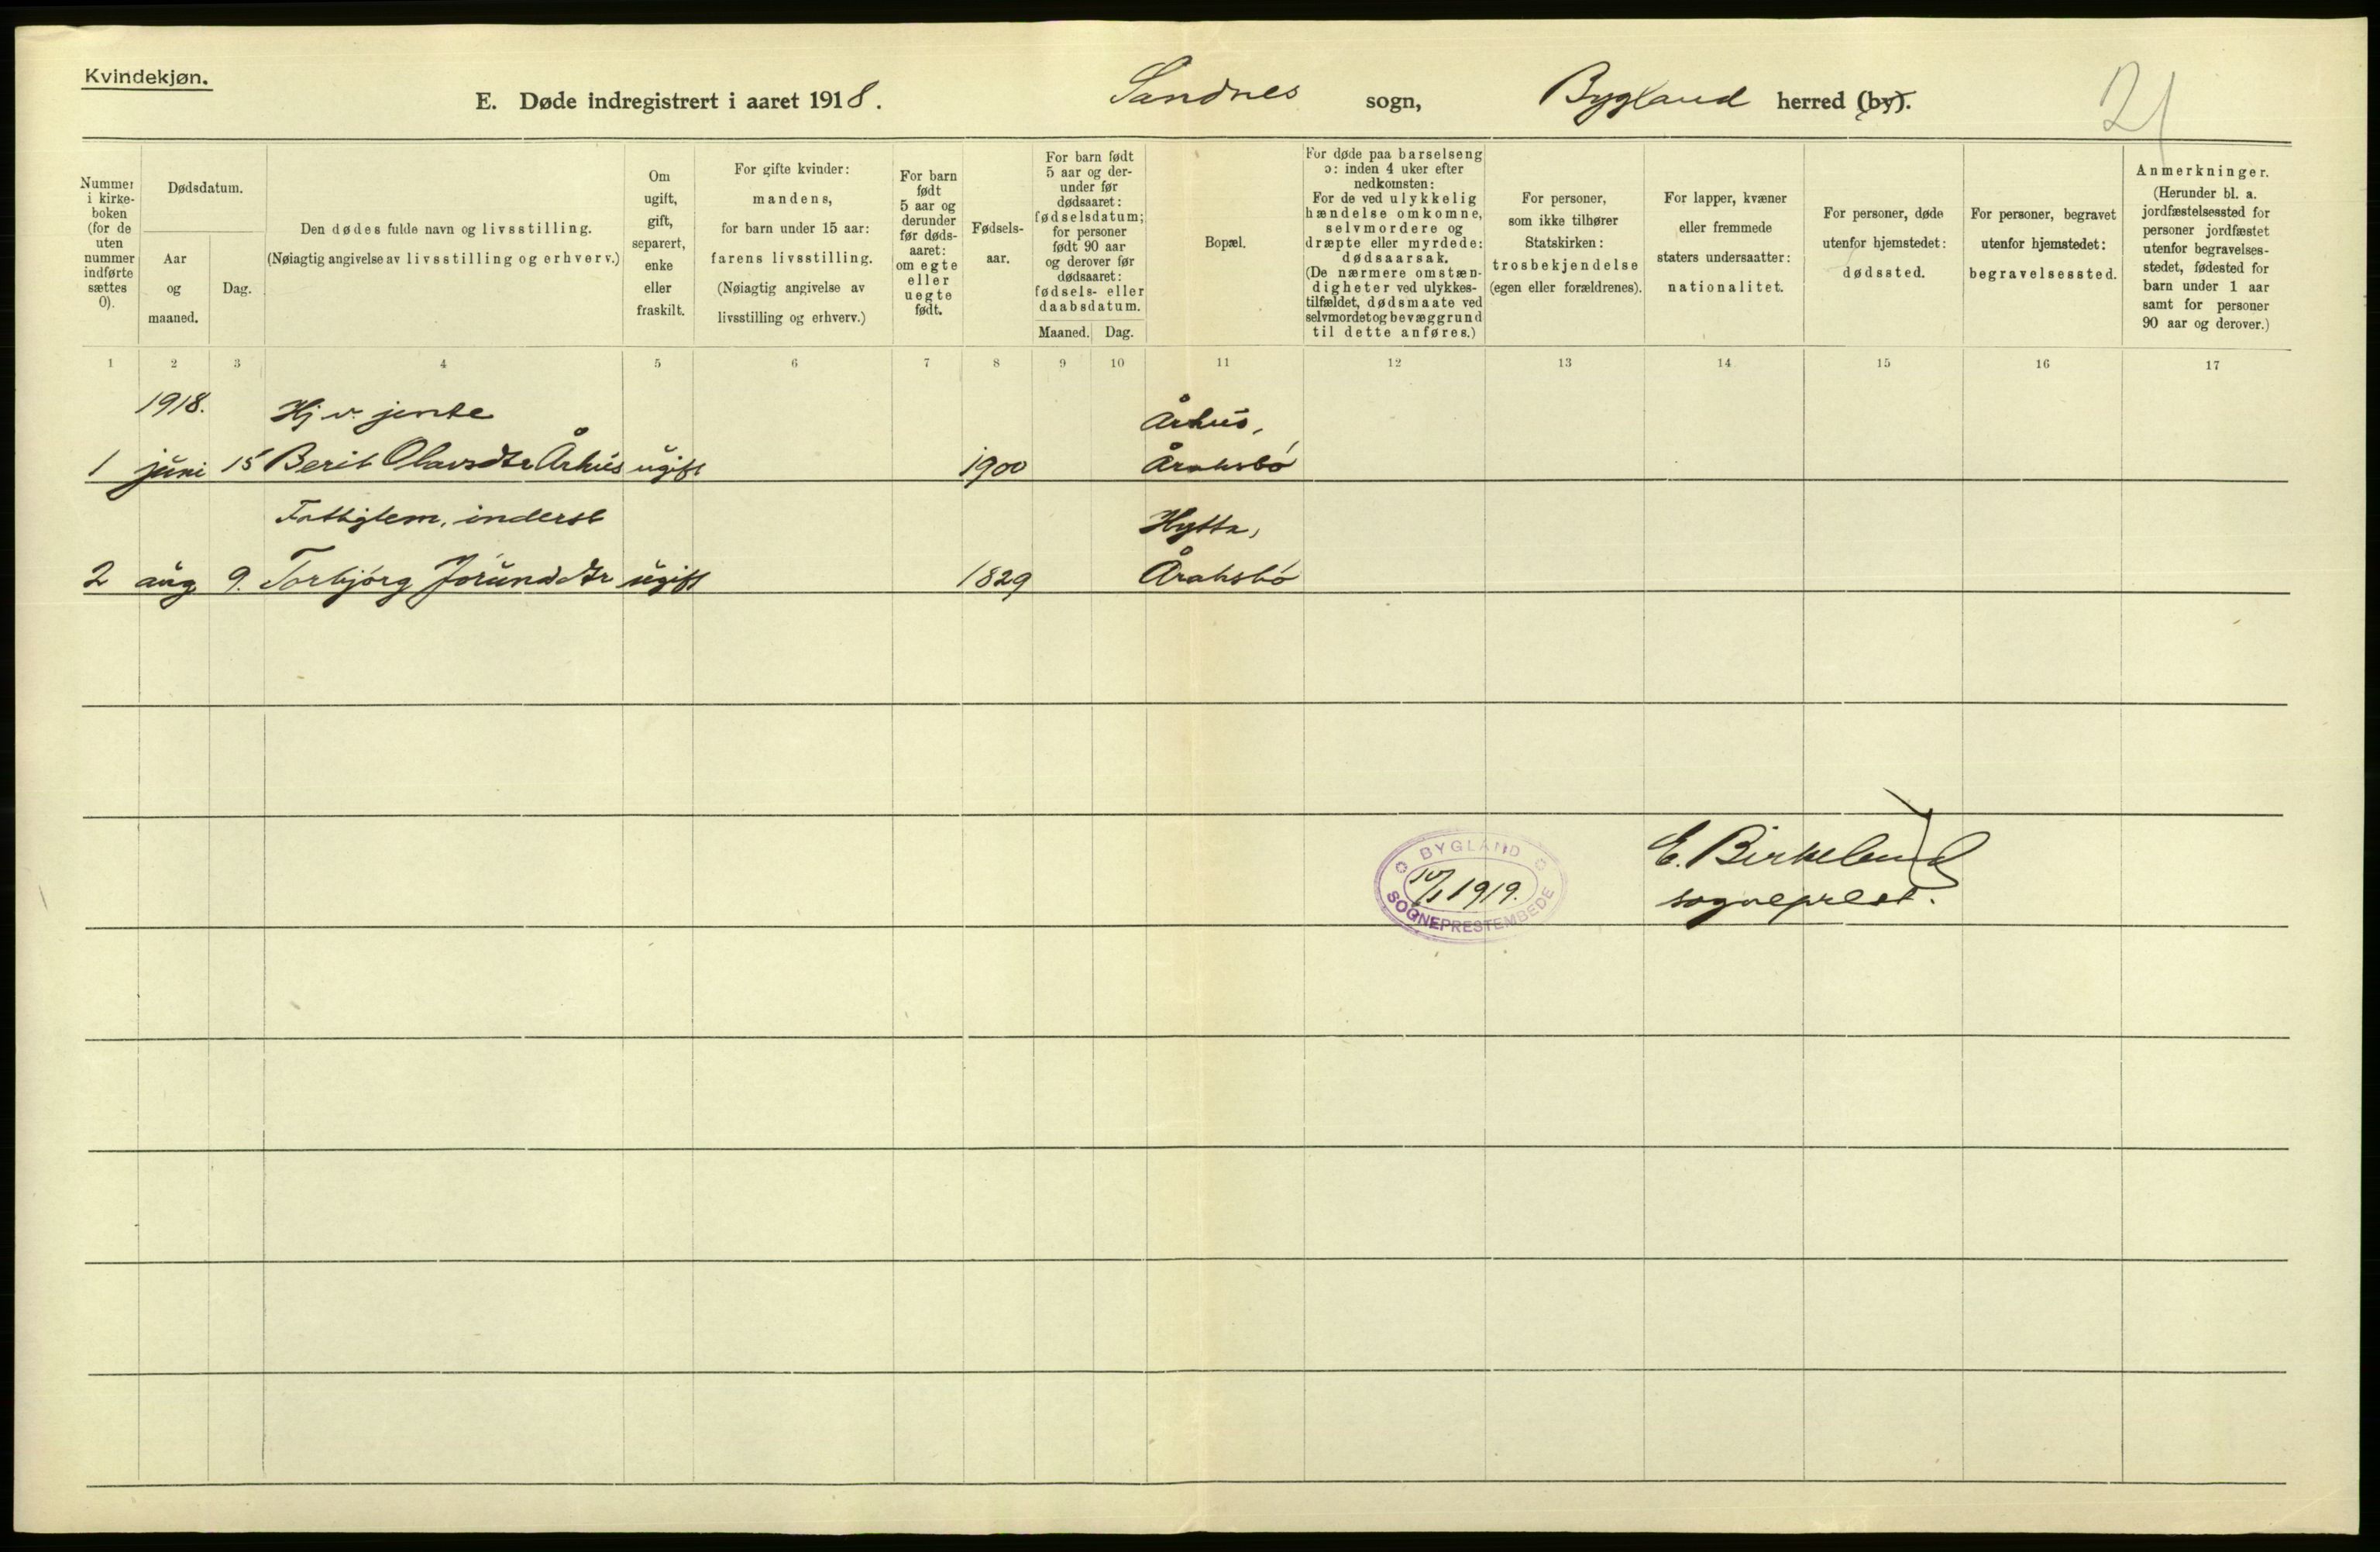 Kvindekjøn.
E. Døde indregistrert i aaret 1918. Sandnes sogn, Bygland herred (by).
21
Nummer i kirke-boken (for de uten nummer indførte sættes 0).
Dødsdatum.
Aar og maaned.
Dag.
Den dødes fulde navn og livsstilling.
(Nøiagtig angivelse av livsstilling og erhverv.)
Om ugift, gift, separert, enke eller fraskilt.
For gifte kvinder: mandens, for barn under 15 aar: farens livsstilling. (Nøiagtig angivelse av livsstilling og erhverv.)
For barn født 5 aar og derunder før døds-aaret: om egte eller uegte født.
Fødsels-aar.
For barn født 5 aar og der-under før dødsaaret: fødselsdatum; for personer født 90 aar og derover før dødsaaret: fødsels- eller daabsdatum.
Maaned. Dag.
Bopæl.
For døde paa barselseng ɔ: inden 4 uker efter nedkomsten: For de ved ulykkelig hændelse omkomne, selvmordere og dræpte eller myrdede: dødsaarsak. (De nærmere omstæn-digheter ved ulykkes-tilfældet, dødsmaate ved selvmordet og bevæggrund til dette anføres.)
For personer, som ikke tilhører Statskirken: trosbekjendelse (egen eller forældrenes).
For lapper, kvæner eller fremmede staters undersaatter: nationalitet.
For personer, døde utenfor hjemstedet: dødssted.
For personer, begravet utenfor hjemstedet: begravelsessted.
Anmerkninger. (Herunder bl. a. jordfæstelsessted for personer jordfæstet utenfor begravelses-stedet, fødested for barn under 1 aar samt for personer 90 aar og derover.)
1 2 3 4 5 6 7 8 9 10 11 12 13 14 15 16 17
1918. Hj v. jente Århus,
1 juni 15 Berit Olavsdtr Århus ugift 1900 Åraksbó
Fattiglem, inderst Hytta,
2 aug 9. Torbjórg Jórunddtr ugift 1829 Åraksbó
BYGLAND
10/1 1919.
SOGNEPRESTEMBEDE
E. Birkeland
sogneprest.